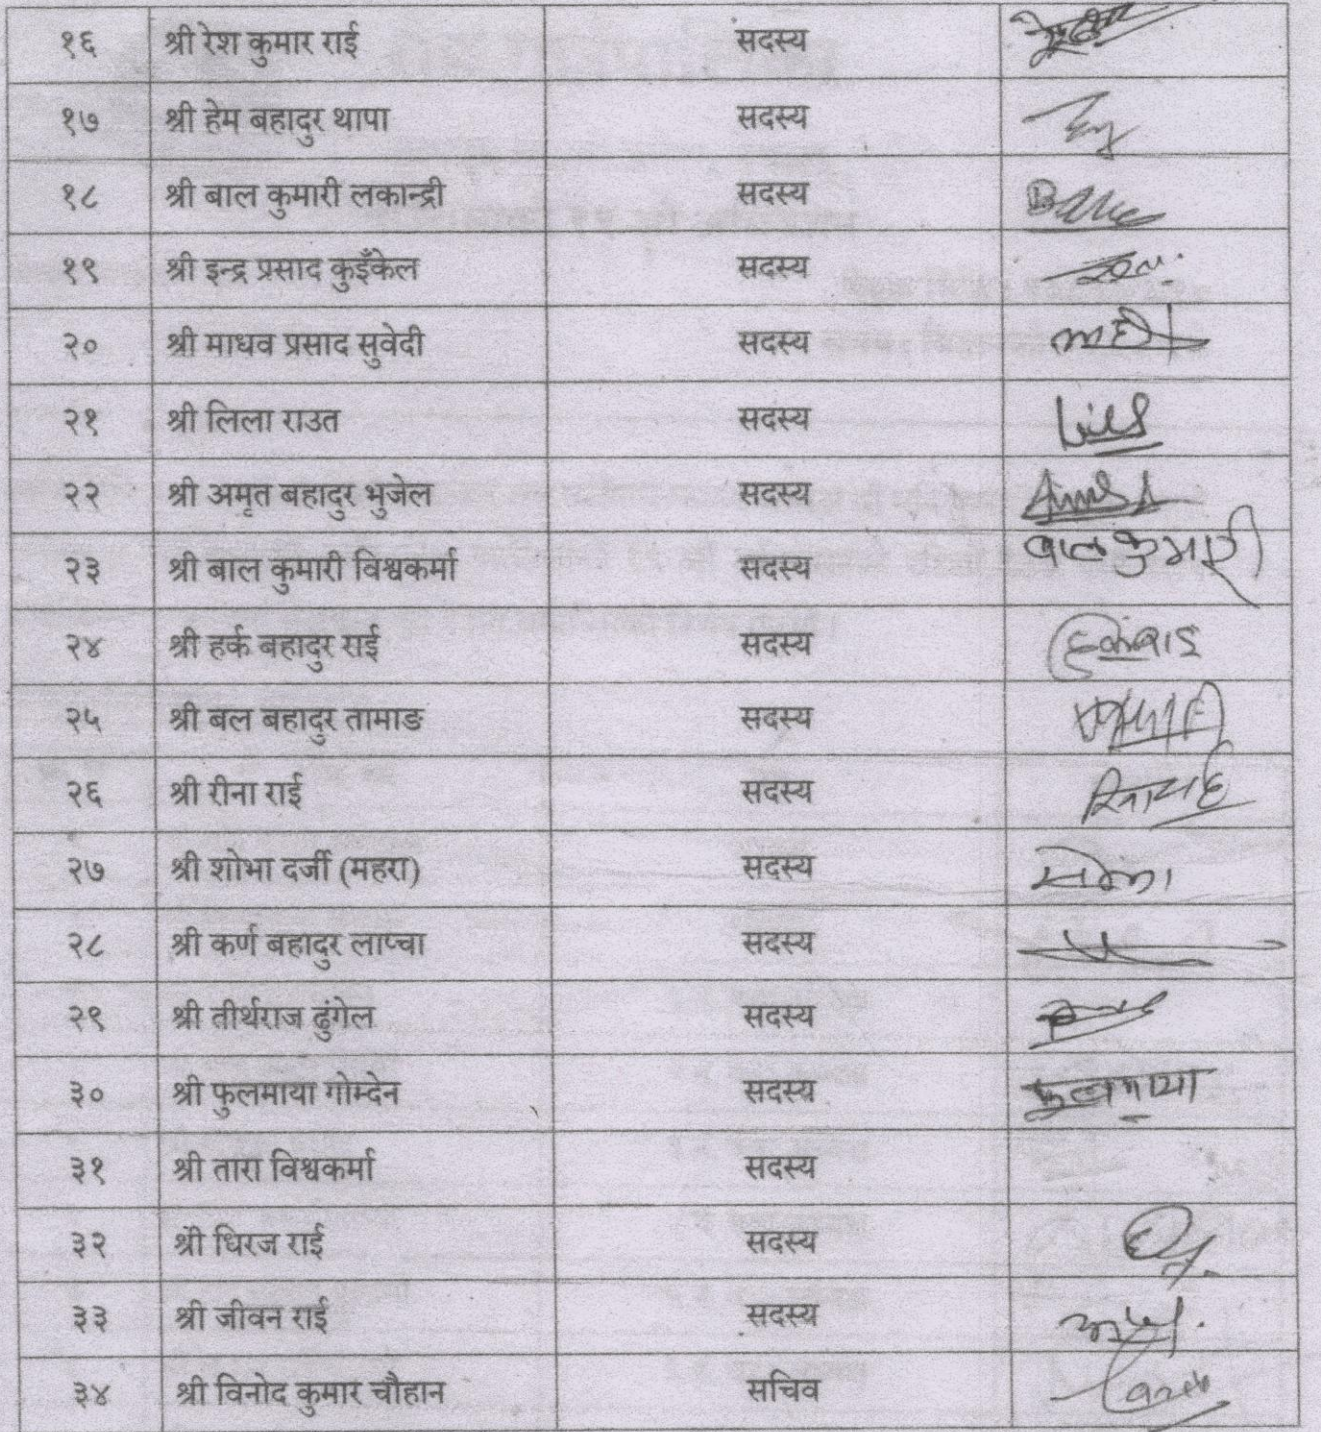 १६ श्री रेश कुमार राई सदस्य
१७ श्री हेम बहादुर थापा सदस्य
१८ श्री बाल कुमारी लकान्द्री सदस्य
१९ श्री इन्द्र प्रसाद कुइँकेल सदस्य
२० श्री माधव प्रसाद सुवेदी सदस्य
२१ श्री लिला राउत सदस्य
२२ श्री अमृत बहादुर भुजेल सदस्य
२३ श्री बाल कुमारी विश्वकर्मा सदस्य बालकुमारी
२४ श्री हर्क बहादुर राई सदस्य
२५ श्री बल बहादुर तामाङ सदस्य
२६ श्री रीना राई सदस्य
२७ श्री शोभा दर्जी (महरा) सदस्य
२८ श्री कर्ण बहादुर लाप्चा सदस्य
२९ श्री तीर्थराज ढुंगेल सदस्य
३० श्री फुलमाया गोम्देन सदस्य फुलमाया
३१ श्री तारा विश्वकर्मा सदस्य
३२ श्री धिरज राई सदस्य
३३ श्री जीवन राई सदस्य
३४ श्री विनोद कुमार चौहान सचिव